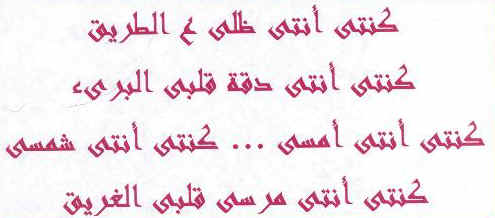 كنتى أنتى ظلى ع الطريق
كنتى أنتى دقة قلبى البرىء
كنتى أنتى أمسى ... كنتى أنتى شمسى
كنتى أنتى مرسى قلبى الغريق